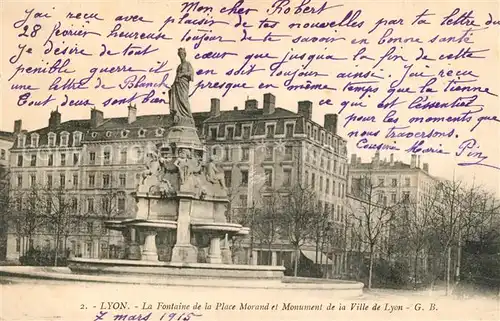 Mon cher Robert
J'ai reçu avec plaisir de tes nouvelles par ta lettre du
28 février heureuse toujour de te savoir en bonne santé
Je désire de tout cœur que jusqua la fin de cette
penible guerre il en soit toujour ainsi. J'ai reçu
une lettre de Blanch en même temps que la tienne
tout deux sont bien ce qui est l'essentiel
pour les moments que
nous traversons.
Cousine Marie Pin
2. - LYON. - La Fontaine de la Place Morand et Monument de la Ville de Lyon - G. B.
7 mars 1915